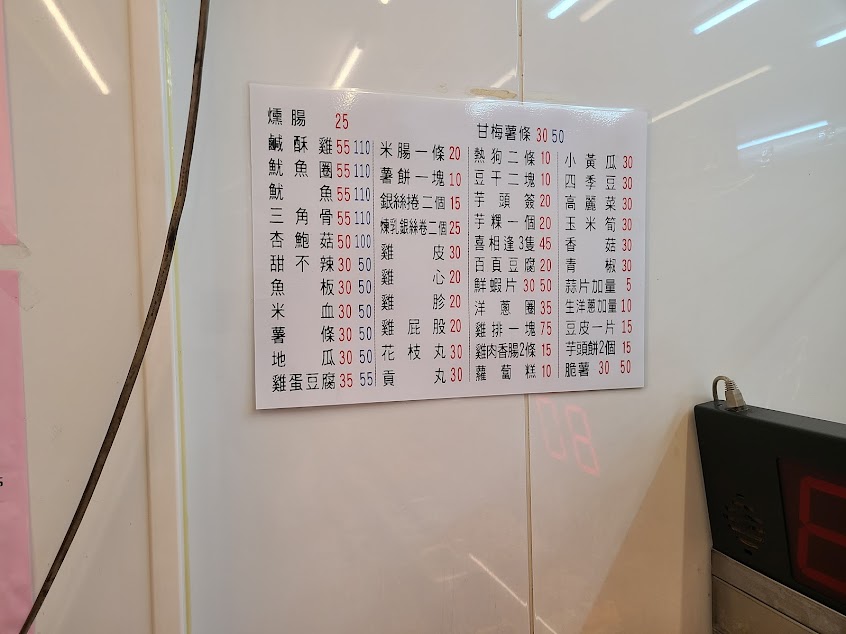 燻腸 25
鹹酥雞 55 110
魷魚圈 55 110
魷魚 55 110
三角骨 55 110
杏鮑菇 50 100
甜不辣 30 50
魚板 30 50
米血 30 50
薯條 30 50
地瓜 30 50
雞蛋豆腐 35 55
米腸一條 20
薯餅一塊 10
銀絲捲二個 15
煉乳銀絲卷二個 25
雞皮 30
雞心 20
雞胗 20
雞屁股 20
花枝丸 30
貢丸 30
甘梅薯條 30 50
熱狗二條 10
豆干二塊 10
芋頭簽 20
芋粿一個 20
喜相逢3隻 45
百頁豆腐 20
鮮蝦片 30 50
洋蔥圈 35
雞排一塊 75
雞肉香腸2條 15
蘿蔔糕 10
小黃瓜 30
四季豆 30
高麗菜 30
玉米筍 30
香菇 30
青椒 30
蒜片加量 5
生洋蔥加量 10
豆皮一片 15
芋頭餅2個 15
脆薯 30 50